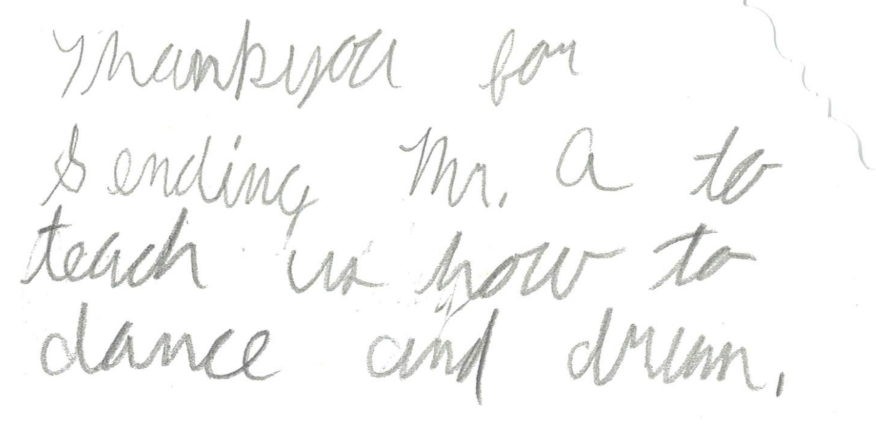 Thankyou for
Sending Mr. A to
teach us how to
dance and dream.